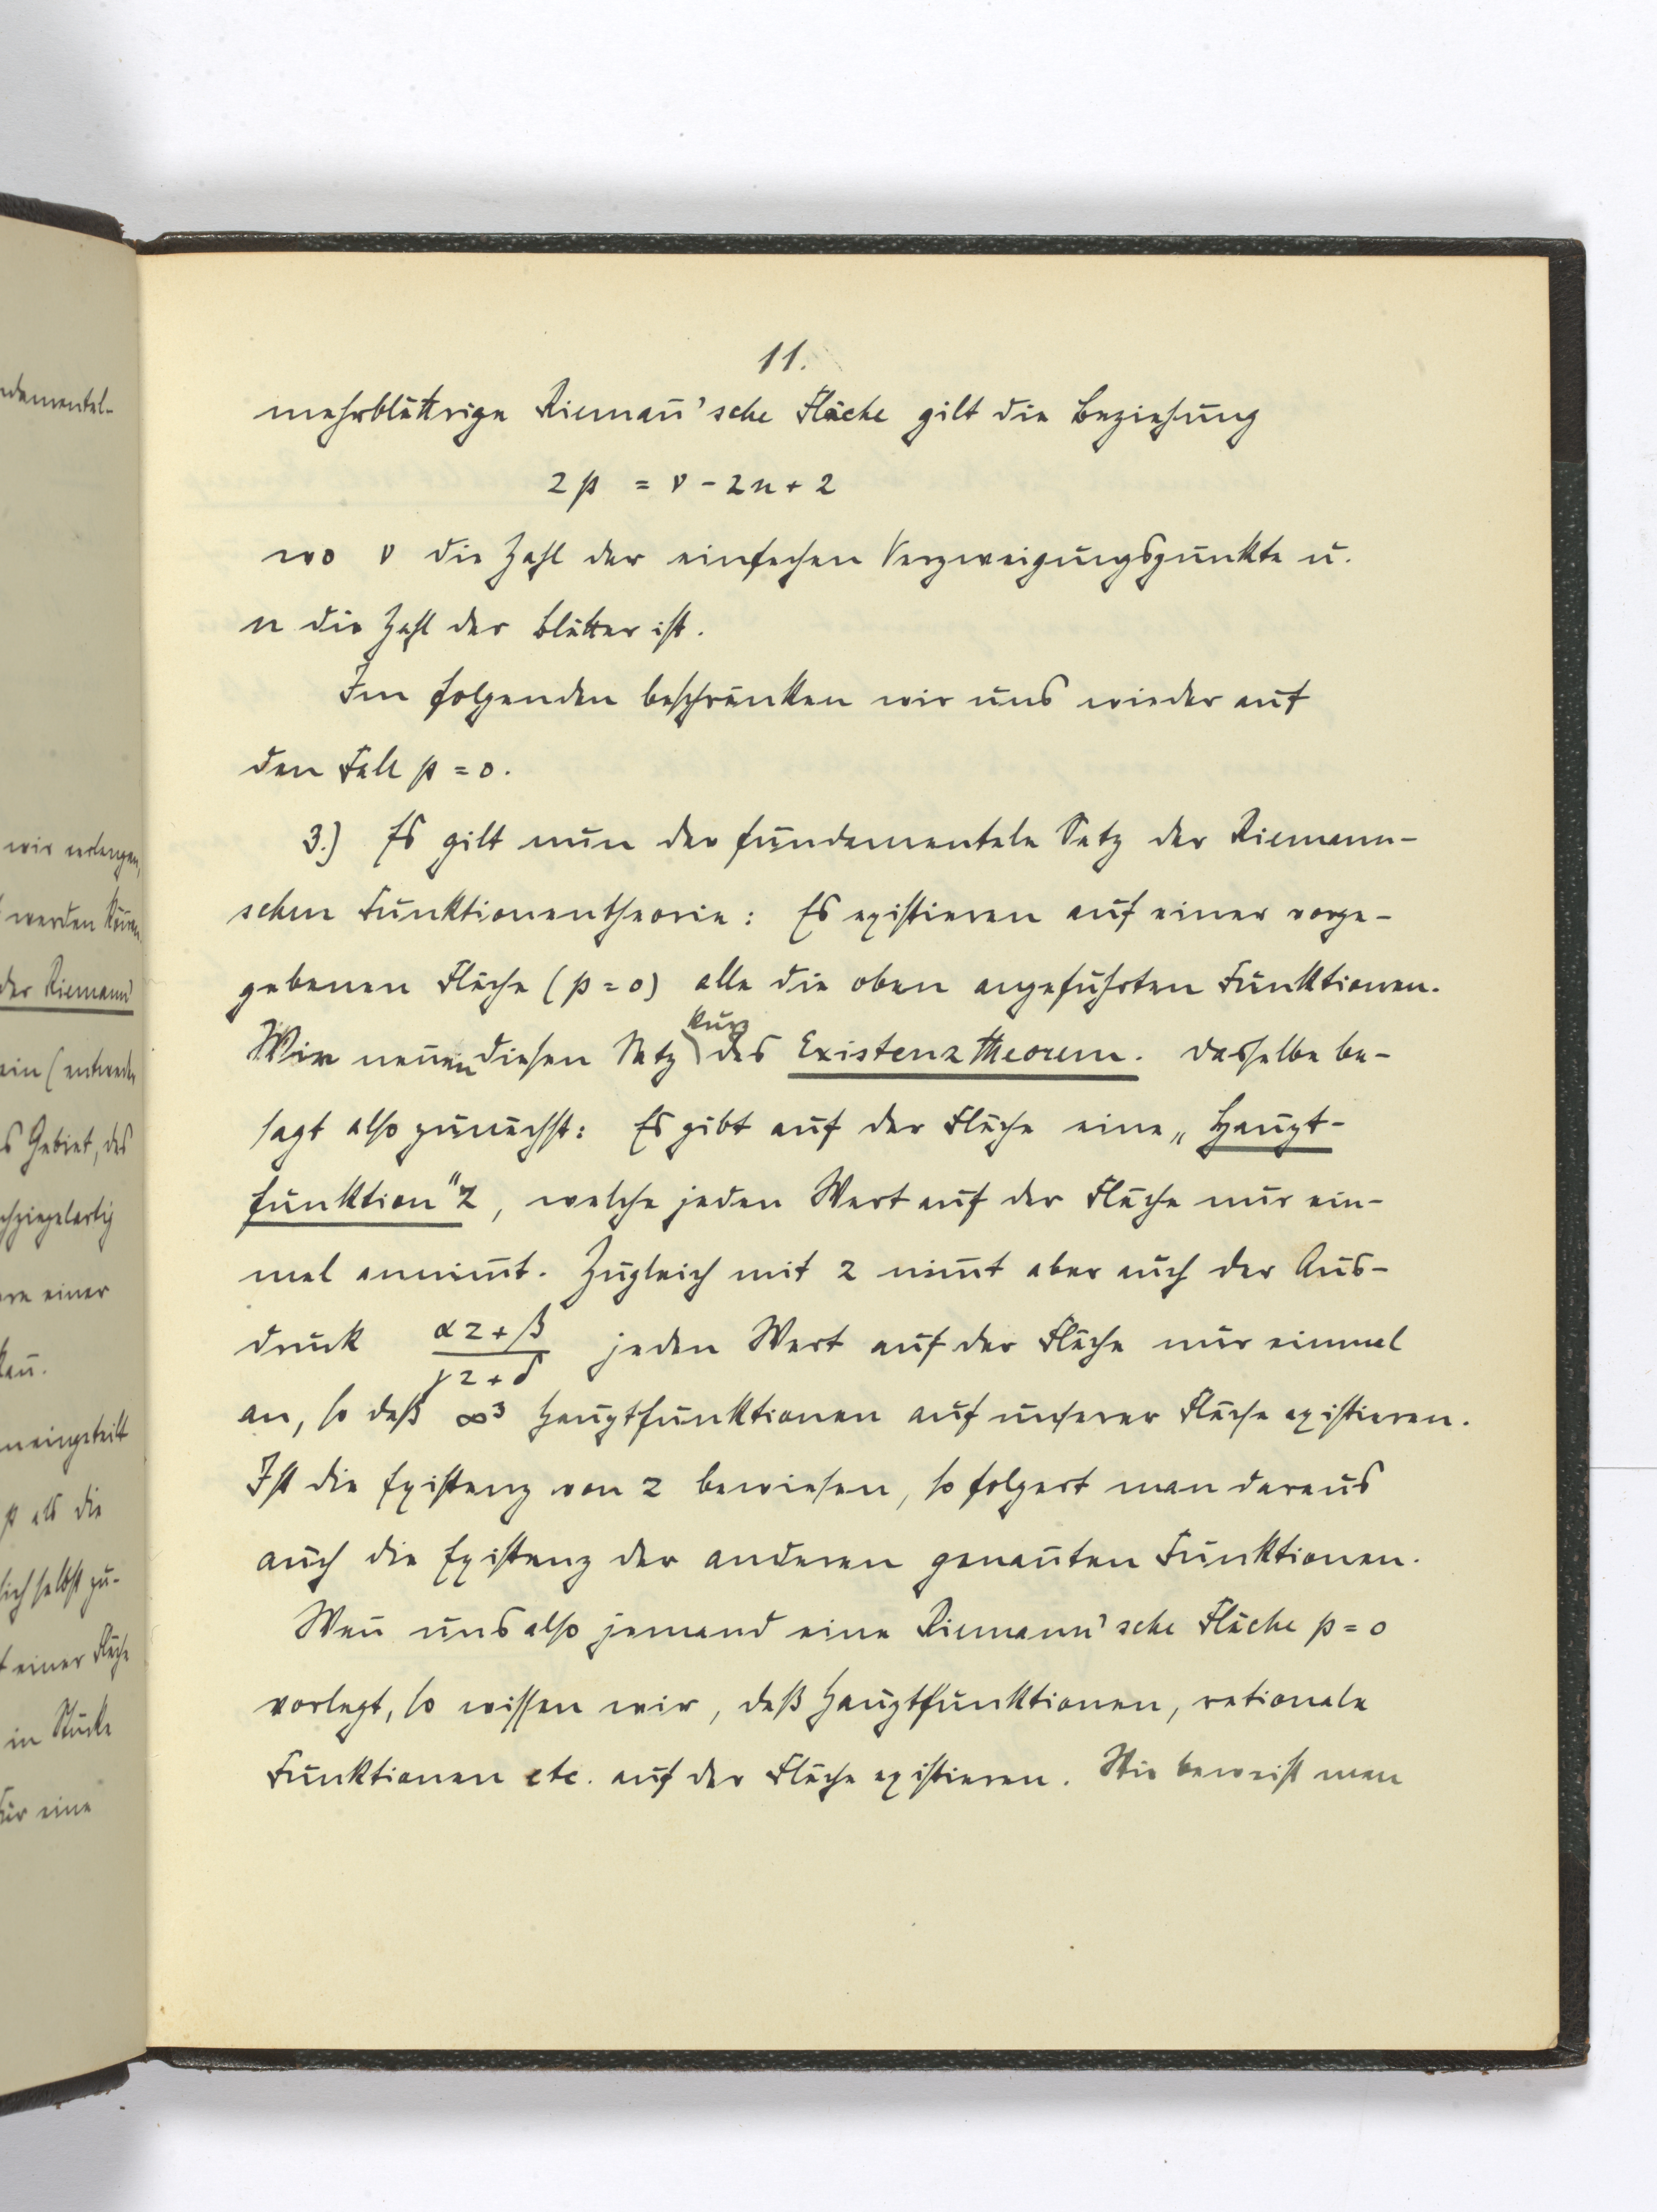 11.
mehrblättrige Riemañ'sche Fläche gilt die Beziehung
2p = ν - 2n + 2
wo ν die Zahl der einfachen Verzweigungspunkte u.
n die Zahl der Blätter ist.
Im folgenden beschränken wir uns wieder auf
den Fall p = 0.
3.) Es gilt nun der fundamentale Satz der Riemann-
schen Funktionentheorie: Es existieren auf einer vorge-
gebenen Fläche (p = 0) alle die oben angeführten Funktionen.
kurz
Wir neñen diesen Satz das Existenztheorem. Dasselbe be-
sagt also zunächst: Es gibt auf der Fläche eine „Haupt-
funktion" z, welche jeden Wert auf der Fläche nur ein-
mal annim̄t. Zugleich mit z nim̄t aber auch der Aus-
druck (αz + β)/(γz + δ) jeden Wert auf der Fläche nur einmal
an, so daß ∞³ Hauptfunktionen auf unserer Fläche existieren.
Ist die Existenz von z bewiesen, so folgert man daraus
auch die Existenz der anderen genañten Funktionen.
Weñ uns also jemand eine Riemann'sche Fläche p = 0
vorlegt, so wissen wir, daß Hauptfunktionen, rationale
Funktionen etc. auf der Fläche existieren. Wie beweist man